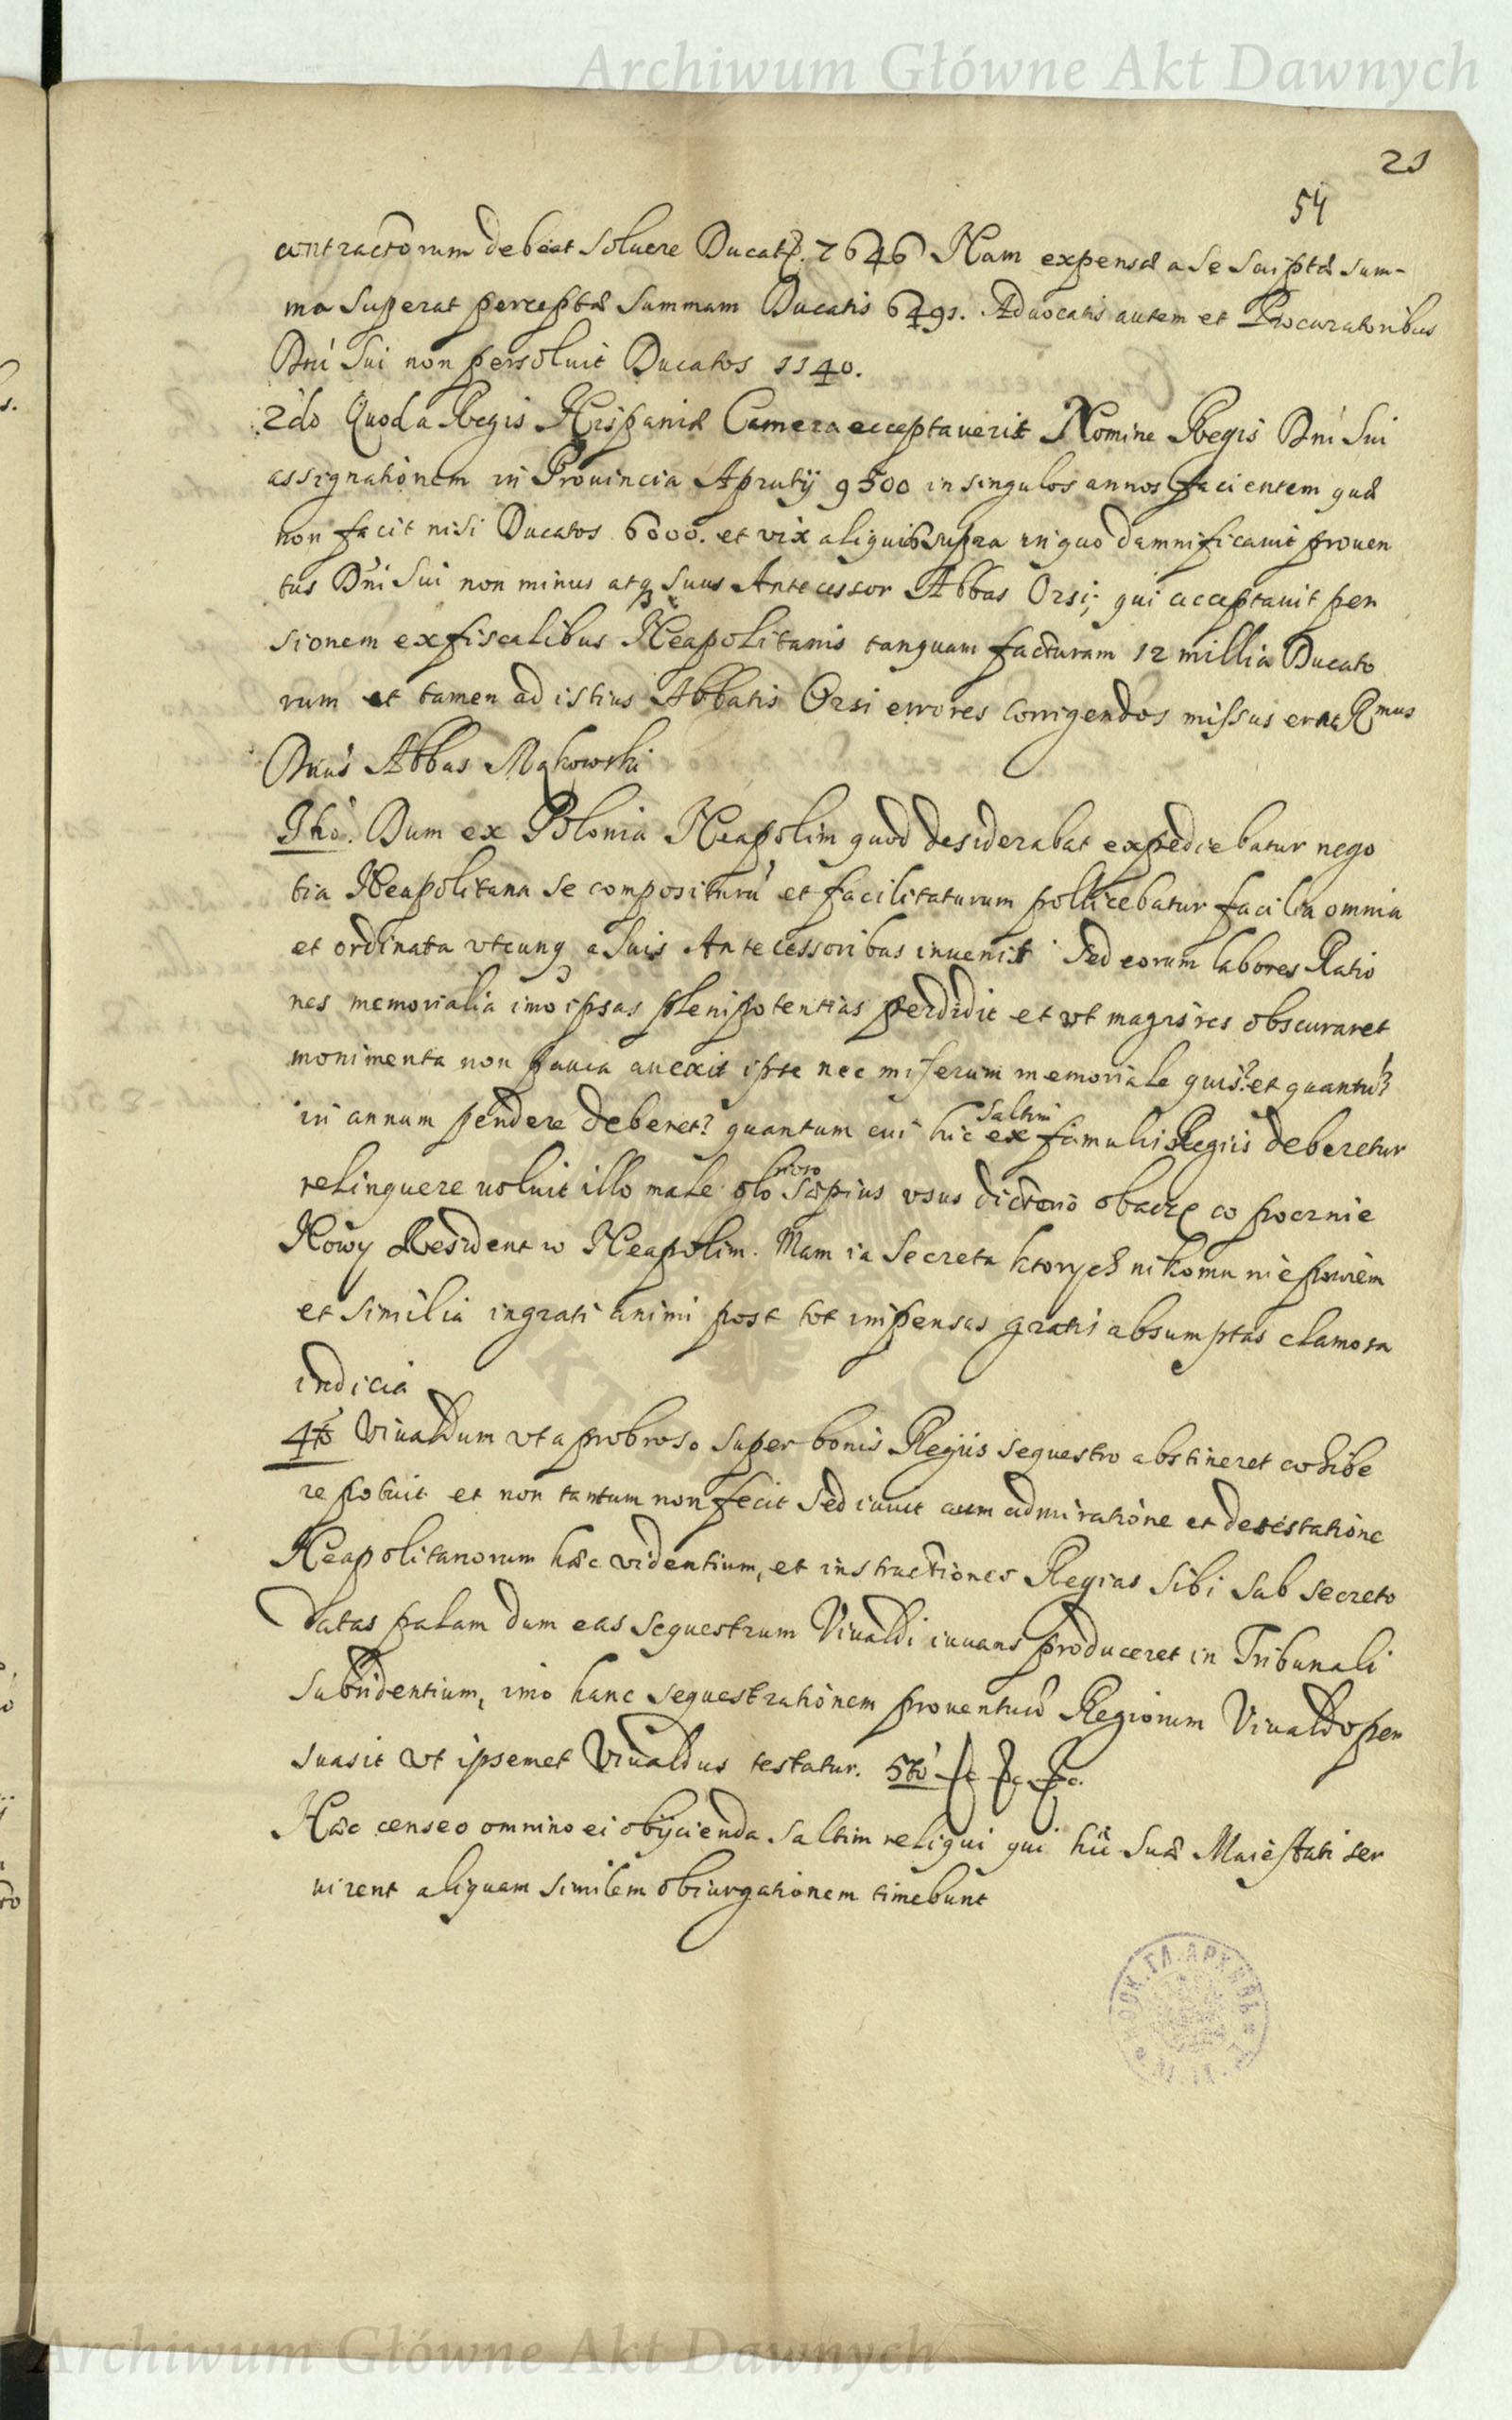 Archiwum Główne Akt Dawnych
21
54
contractorum debeat soluere Ducat. 7646 Nam expensæ a se scriptæ sum-
ma superat perceptæ summam Ducatis 6491. Aduocatis autem et Procuratoribus
Dni sui non persoluit Ducatos 1140.
2do Quod a Regis Hispaniæ Camera acceptauerit Nomine Regis Dni sui
assignationem in Prouincia Aprutij 9500 in singulos annos facientem quæ
non facit nisi Ducatos 6000. et vix aliquid supra in quo damnificauit prouen
tus Dni sui non minus atq suus Antecessor Abbas Orsi; qui acceptauit pen
sionem ex fiscalibus Neapolitanis tanquam facturam 12 millia Ducato
rum et tamen ad istius Abbatis Orsi errores corrigendos missus erat Rmus
Dnus Abbas Mąkowski
3tio. Dum ex Polonia Neapolim quod desiderabat expediebatur nego
tia Neapolitana se compositurũ et facilitaturum pollicebatur facilia omnia
et ordinata vtcunq a suis Antecessoribus inuenit sed eorum labores Ratio
nes memorialia imo ipsas plenipotentias perdidit et vt magis res obscuraret
monimenta non pauca auexit ipse nec miserum memoriale quis? et quantũ?
in annum pendere deberet? quantum cui hic saltim ex famulis Regiis deberetur
relinquere uoluit illo male olo sæpius vsus dicterio obaczę co pocznie
Nowy Resident w Neapolim. Mam ia secreta ktorych nikomu nie powiem
et similia ingrati animi post tot impensas gratis absumptas clamosa
indicia
4to Viualdum vt a probroso super bonis Regiis sequestro abstineret cohibe
re potuit et non tantum non fecit sed iuuit cum admiratione et detestatione
Neapolitanorum hæc videntium, et instructiones Regias sibi sub secreto
datas palam dum eas sequestrum Viualdi iuuans produceret in Tribunali
subridentium, imo hanc sequestrationem prouentuũ Regiorum Viualdo per
suasit vt ipsemet Viualdus testatur. 5to &c &c &c.
Hæc censeo omnino ei obijcienda saltim reliqui qui hic Suæ Maiestati ser
uirent aliquam similem obiurgationem timebunt
Archiwum Główne Akt Dawnych